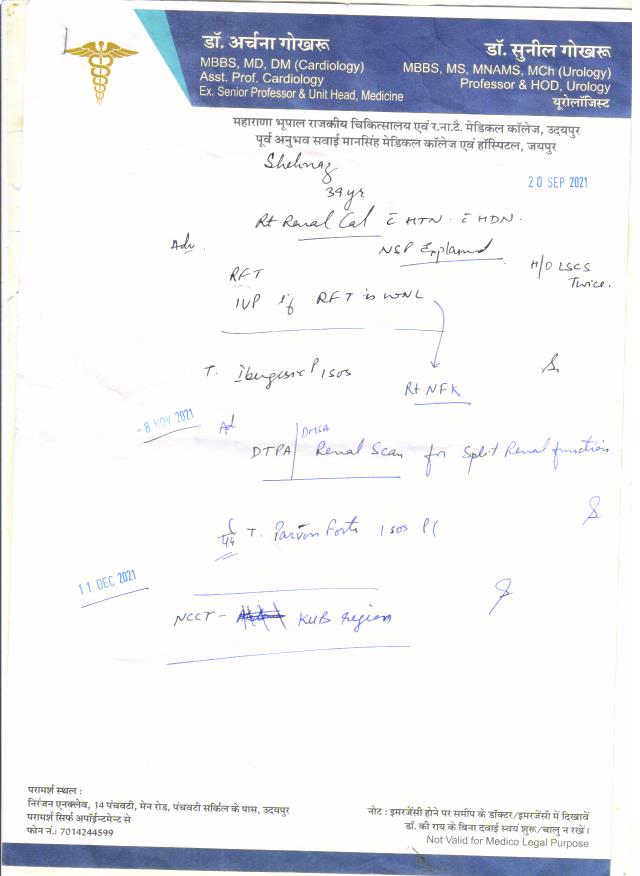 डॉ. अर्चना गोखरू
MBBS, MD, DM (Cardiology)
Asst. Prof. Cardiology
Ex. Senior Professor & Unit Head, Medicine
डॉ. सुनील गोखरू
MBBS, MS, MNAMS, MCh (Urology)
Professor & HOD, Urology
यूरोलॉजिस्ट
महाराणा भूपाल राजकीय चिकित्सालय एवं र.ना.टै. मेडिकल कॉलेज, उदयपुर
पूर्व अनुभव सवाई मानसिंह मेडिकल कॉलेज एवं हॉस्पिटल, जयपुर
Shehnaz
20 SEP 2021
39 yr
Rt Renal Cal c̄ HTN . c̄ HDN .
Adv . NSP Explained
H/O LSCS
Twice .
RFT
IVP if RFT is WNL
T. Ibugesic P 1 sos
Rt NFK
-8 NOV 2021
Ad
DTPA / DMSA Renal Scan for Split Renal function
T. Parvon Forte 1 sos
11 DEC 2021
NCCT - KUB region
परामर्श स्थल :
निरंजन एनक्लेव, 14 पंचवटी, मेन रोड, पंचवटी सर्किल के पास, उदयपुर
परामर्श सिर्फ अपॉईन्टमेन्ट से
फोन नं.: 7014244599
नोट : इमरजेंसी होने पर समीप के डॉक्टर/इमरजेंसी में दिखावें
डॉ. की राय के बिना दवाई स्वयं शुरू/चालु न रखें।
Not Valid for Medico Legal Purpose